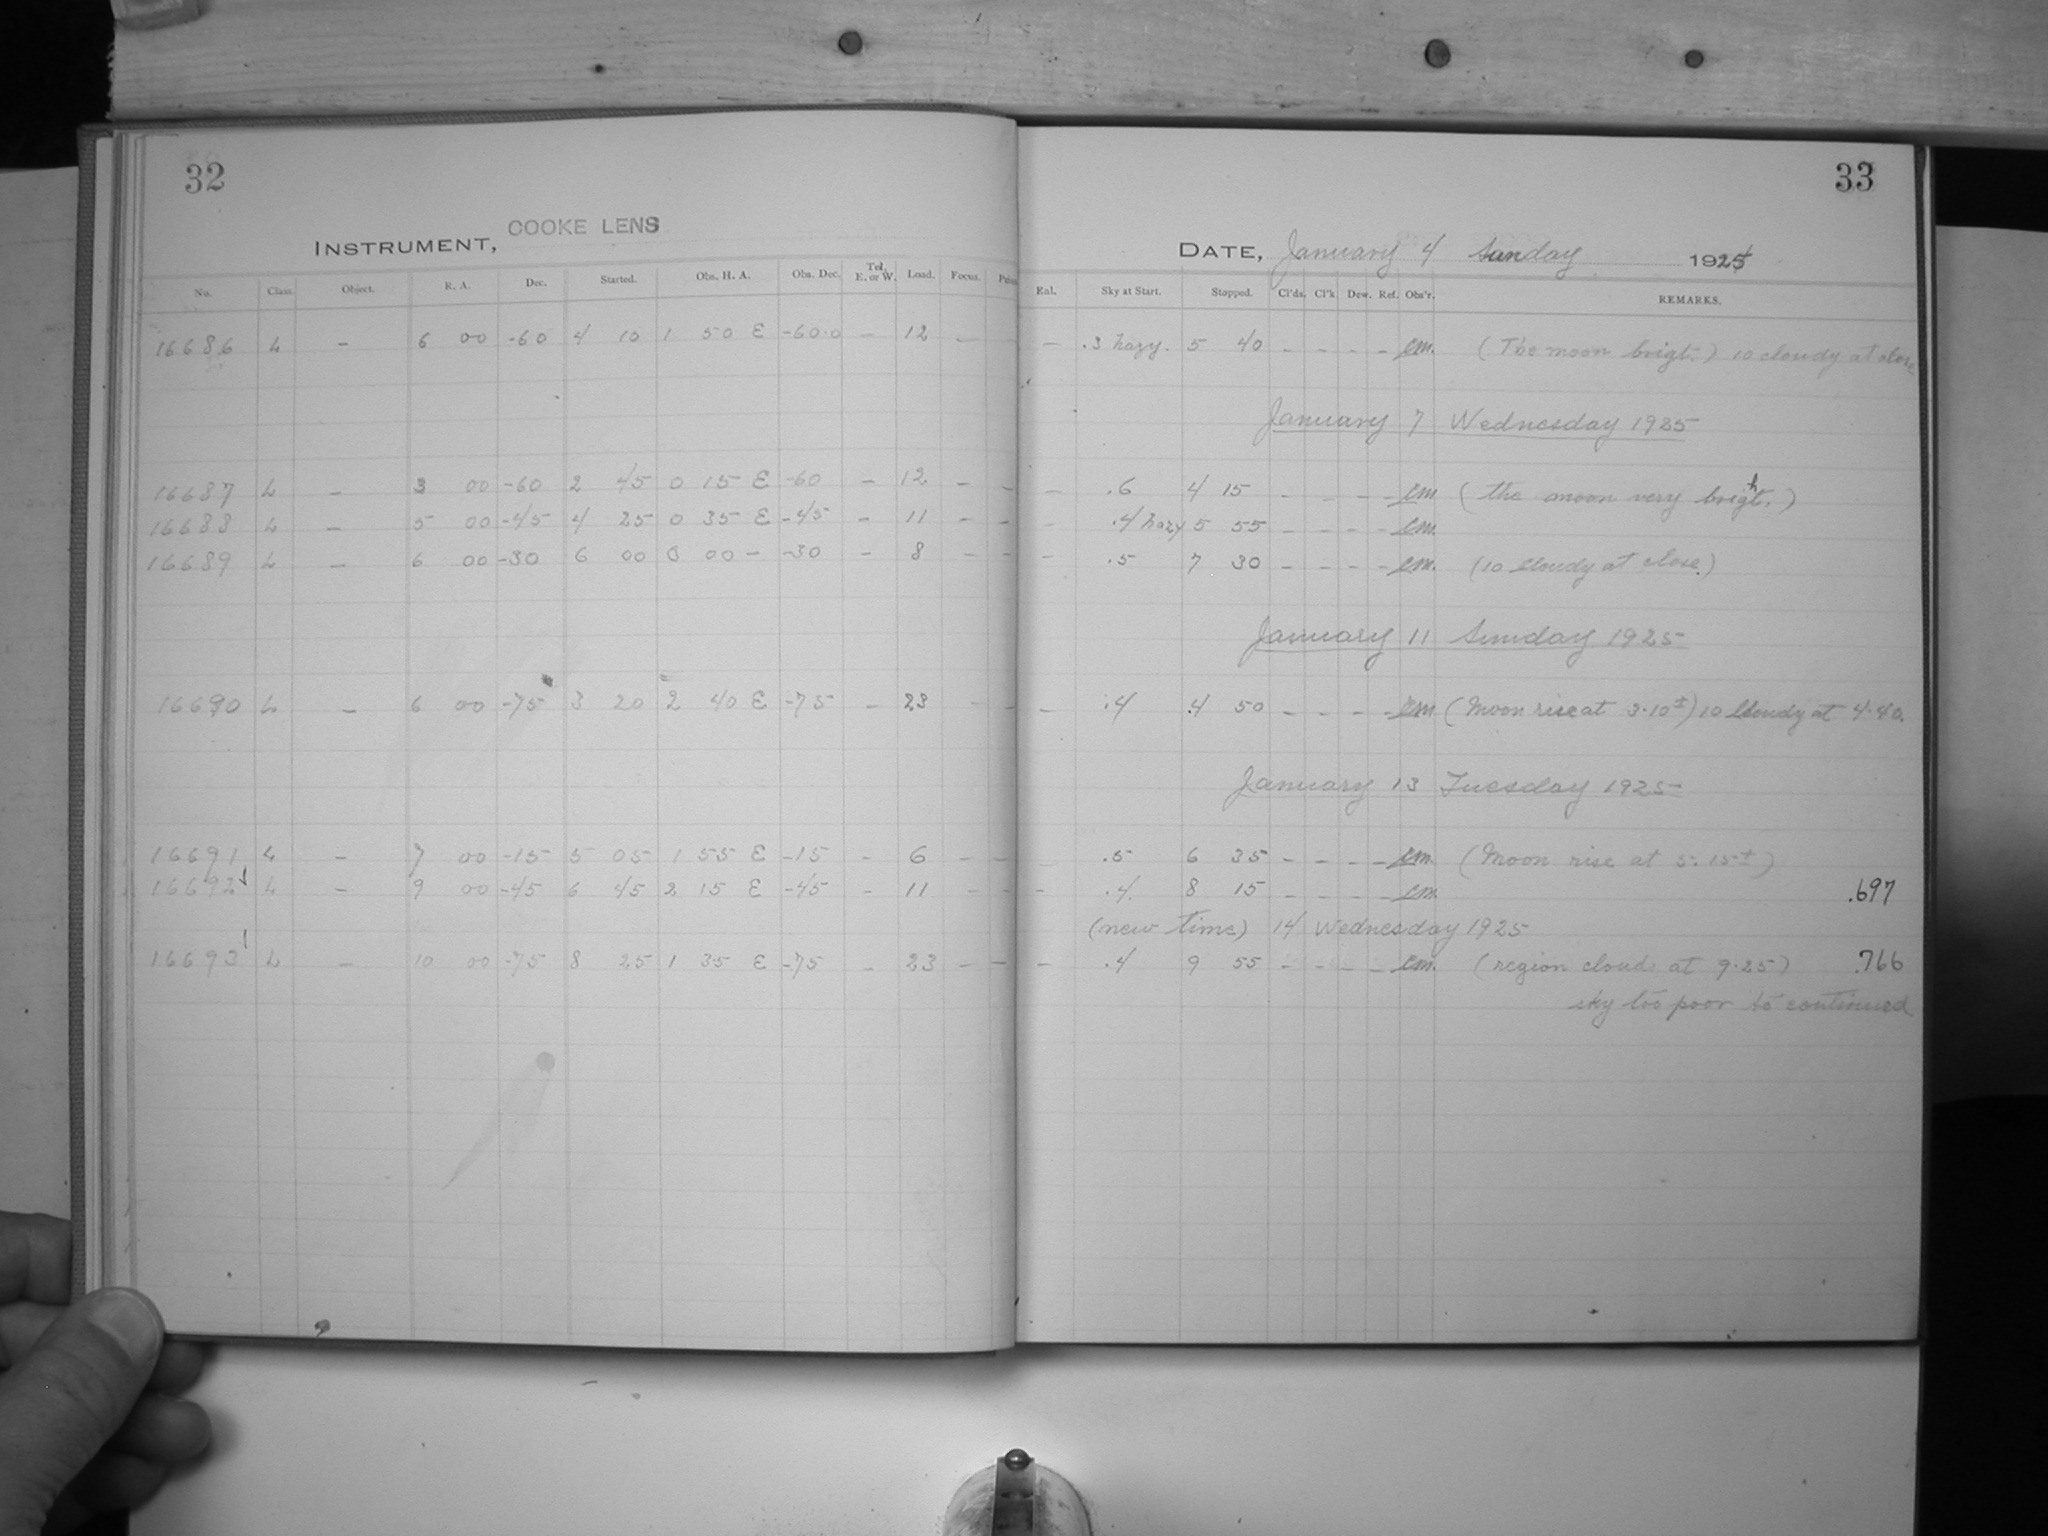 32
INSTRUMENT, COOKE LENS
No. Class. Object. R. A. Dec. Started. Obs. H. A. Obs. Dec. Tel. E. or W. Load. Focus.
16686 L - 6 00 -60 4 10 1 50 E -60.0 - 12 -
16687 L - 3 00 -60 2 45 0 15 E -60 - 12 - -
16688 L - 5 00 -45 4 25 0 35 E -45 - 11 - -
16689 L - 6 00 -30 6 00 0 00 - -30 - 8 - -
16690 L - 6 00 -75 3 20 2 40 E -75 - 23 - -
16691 L - 7 00 -15 5 05 1 55 E -15 - 6 - -
16692 L - 9 00 -45 6 45 2 15 E -45 - 11 - -
16693 L - 10 00 -75 8 25 1 35 E -75 - 23 - -
33
DATE, January 4 Sunday 1925
Sky at Start. Stopped. Cl'ds. Cl'k Dew. Ref. Obs'r. REMARKS.
- .3 hazy. 5 40 - - - - em. (The moon brigt.) 10 cloudy at close
January 7 Wednesday 1925
- .6 4 15 - - - - em (the moon very bright.)
- .4 hazy 5 55 - - - - em.
- .5 7 30 - - - - em. (10 cloudy at close.)
January 11 Sunday 1925
- .4 4 50 - - - - em (Moon rise at 3.10±) 10 cloudy at 4.40.
January 13 Tuesday 1925
.5 6 35 - - - - em. (Moon rise at 5.15±)
- .4. 8 15 - - - - em. .697
(new time) 14 Wednesday 1925
- .4 9 55 - - - - em. (region clouds at 9.25) .766
sky too poor to continued